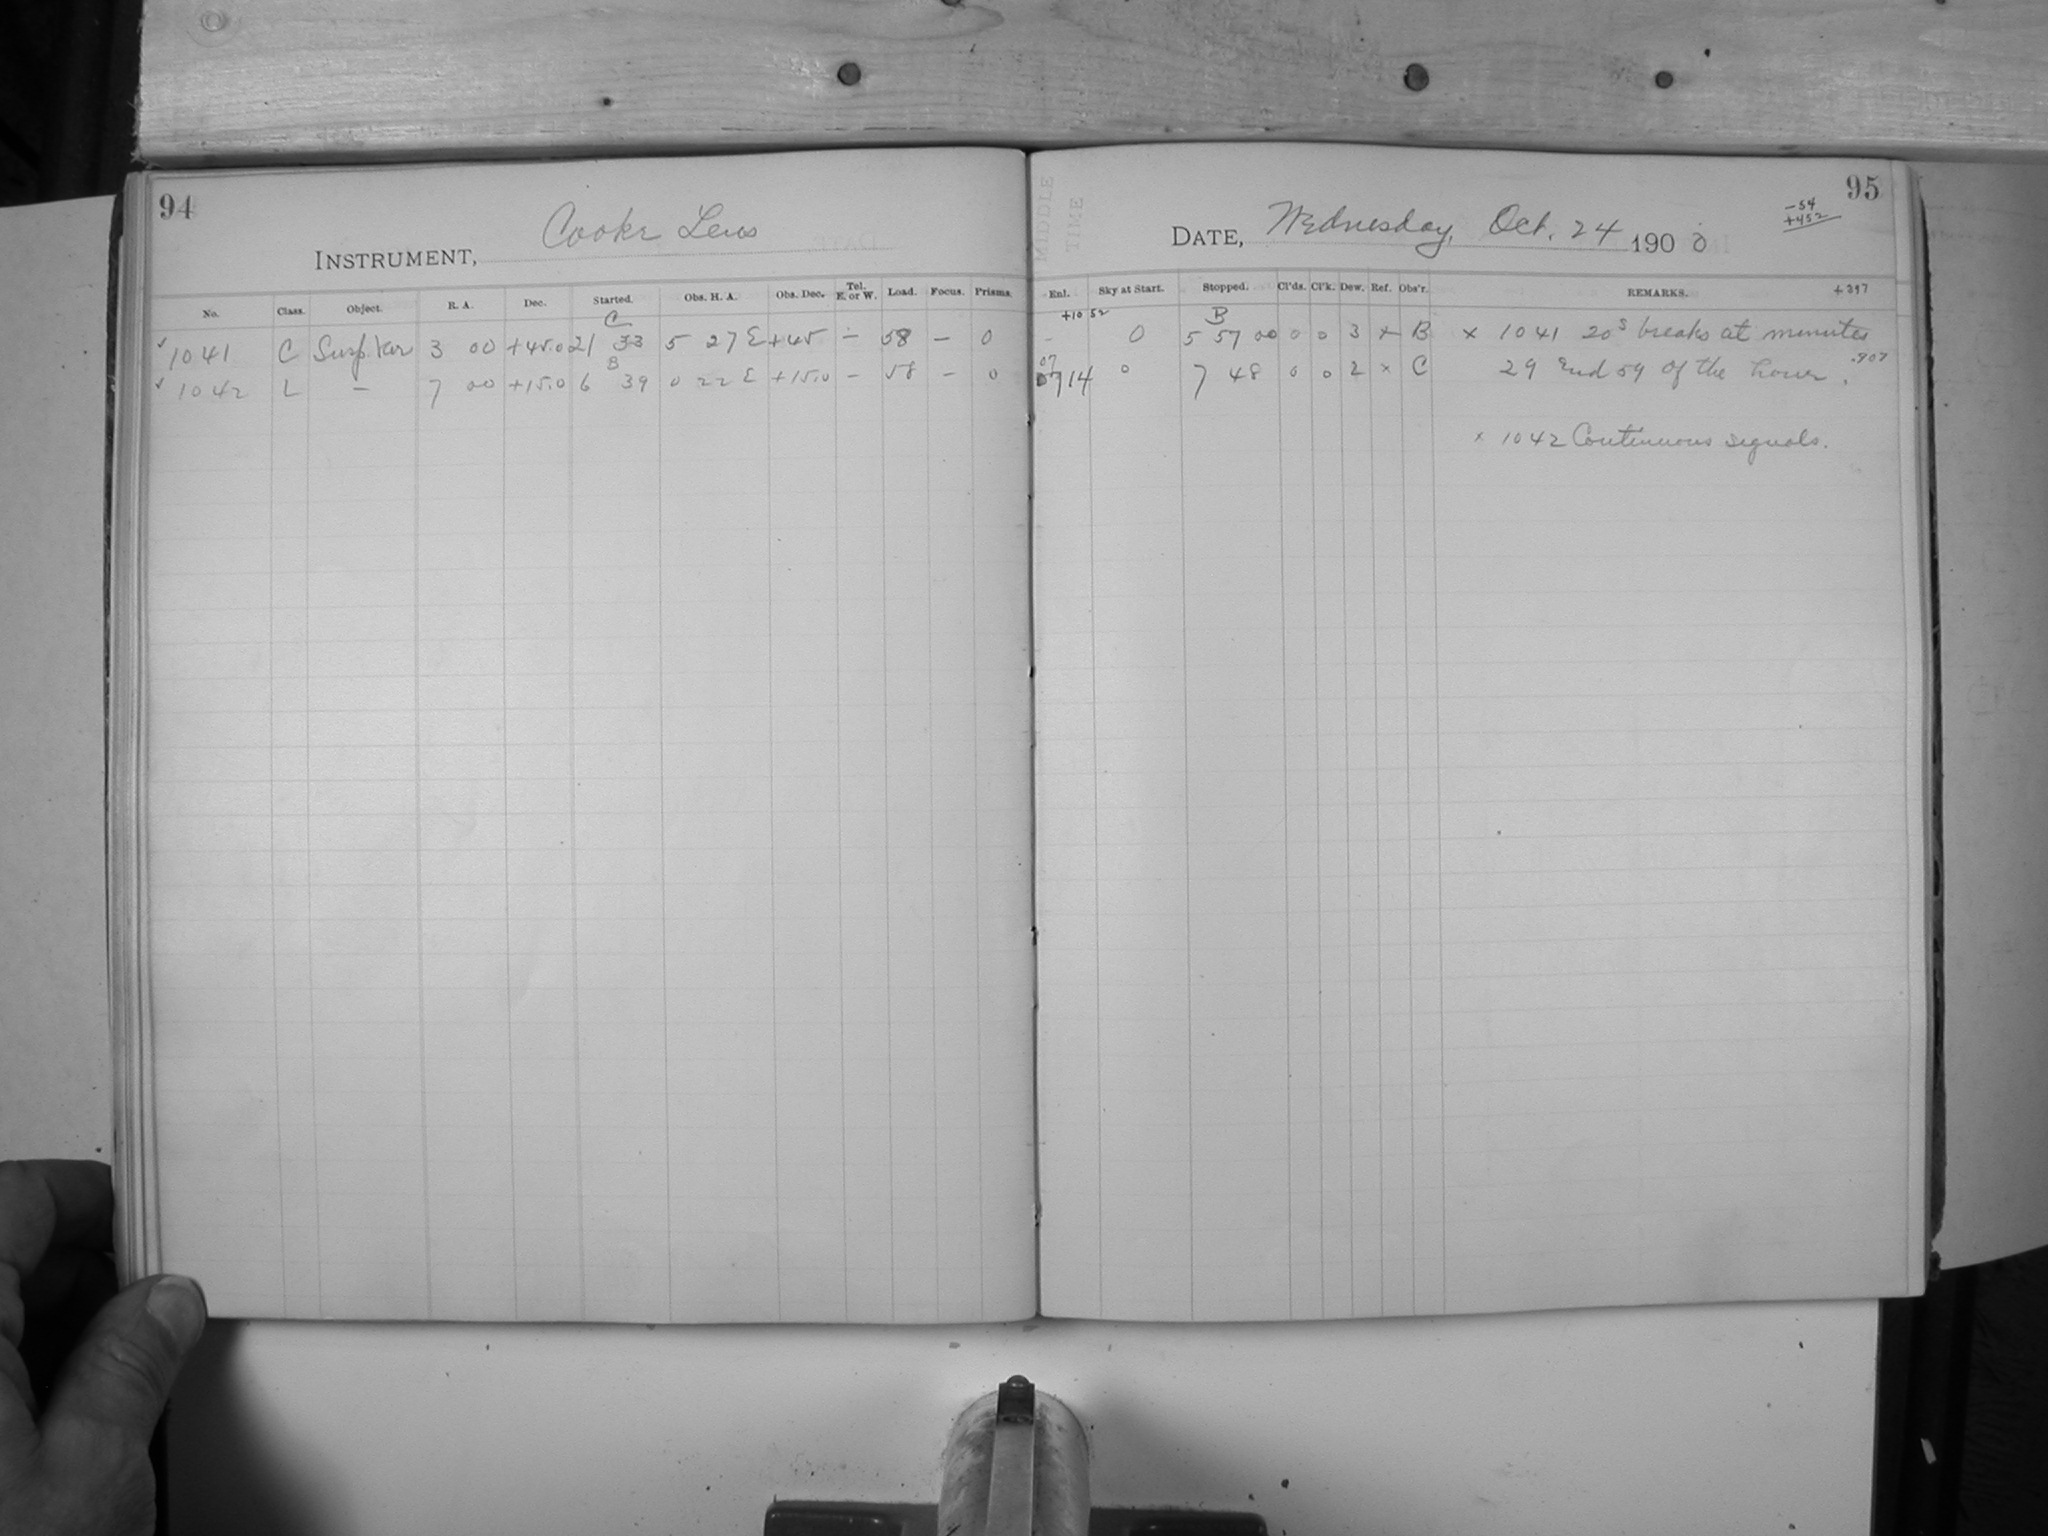 94
Cooke Lens
INSTRUMENT,
No. Class. Object. R. A. Dec. Started. Obs. H. A. Obs. Dec. Tel. E. or W. Load. Focus. Prisms.
C
✓ 1041 C 3 00 +45.0 21 33 5 27 E +45 – 58 – 0
B
✓ 1042 L – 7 00 +15.0 6 39 0 22 E +15.0 – 58 – 0
95
-54
+452
MIDDLE
TIME
DATE, Wednesday, Oct. 24 1900
Enl. Sky at Start. Stopped. Cl'ds. Cl'k. Dew. Ref. Obs'r. REMARKS. +397
+10 52 B
- 0 5 57 00 0 0 3 × B × 1041 20s breaks at minutes
07
0714 0 7 48 0 0 2 × C 29 and 59 of the hour. .907
× 1042 Continuous signals.